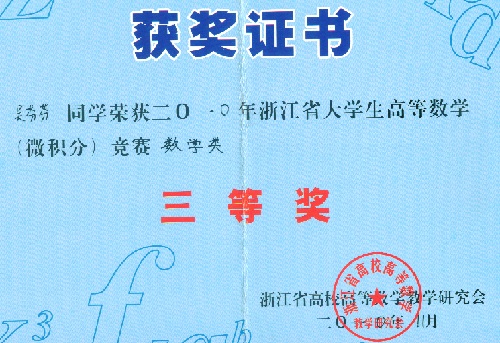 获奖证书
同学荣获二〇一〇年浙江省大学生高等数学
(微积分)竞赛 数学类
三等奖
浙江省高校高等数学教学研究会
二〇一〇年 月
浙江省高校高等数学
教学研究会
x³